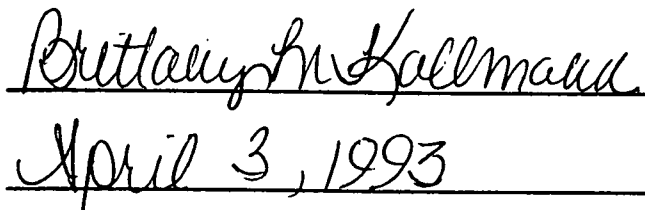 Brittany M Kallmann
April 3, 1993